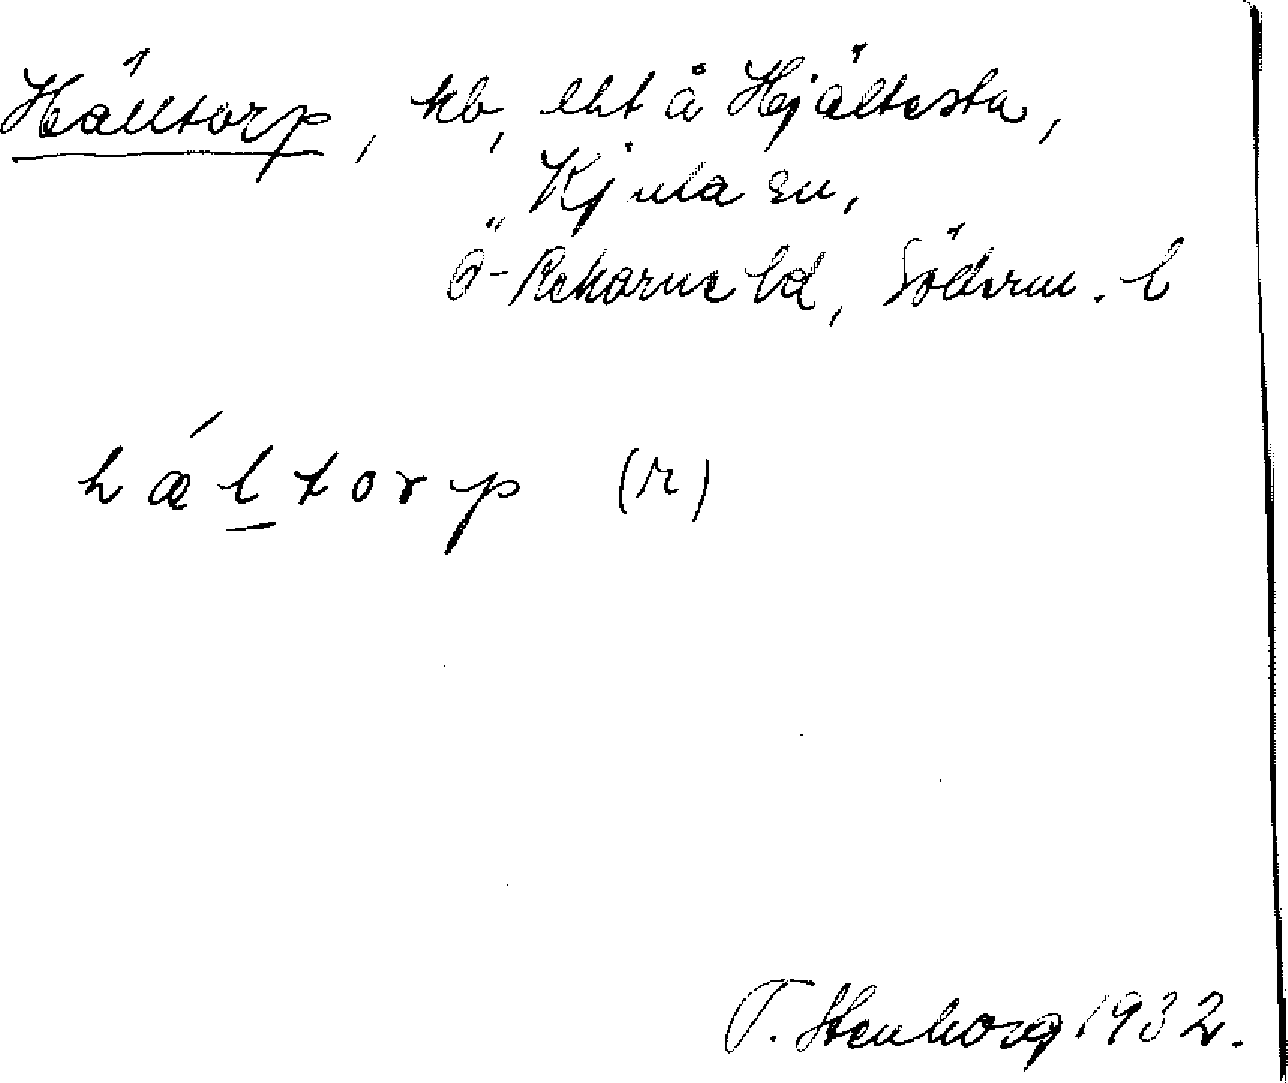 Hälltorp, kb, lht å Hjältesta,
Kjula sn,
Ö-Rekarne hd, Söderm. l
hæltorp (r)
T. Stenborg 1932.